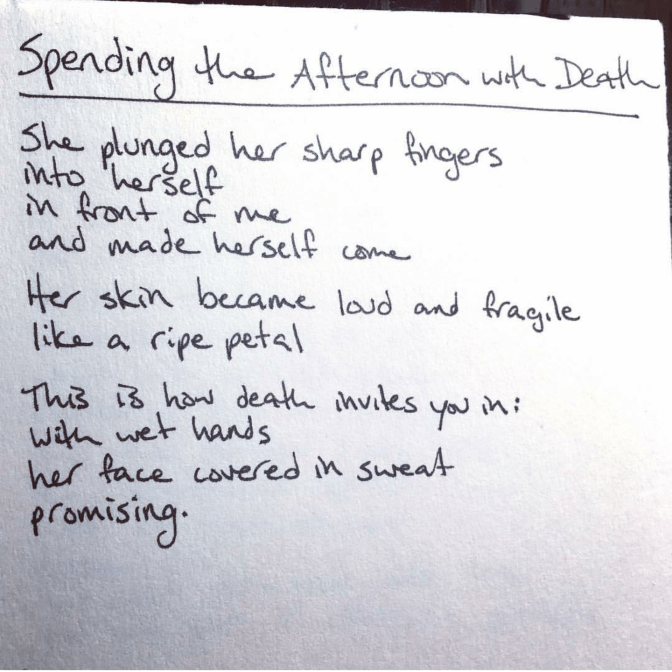 Spending the Afternoon with Death
She plunged her sharp fingers
into herself
in front of me
and made herself come
Her skin became loud and fragile
like a ripe petal
This is how death invites you in:
with wet hands
her face covered in sweat
promising.